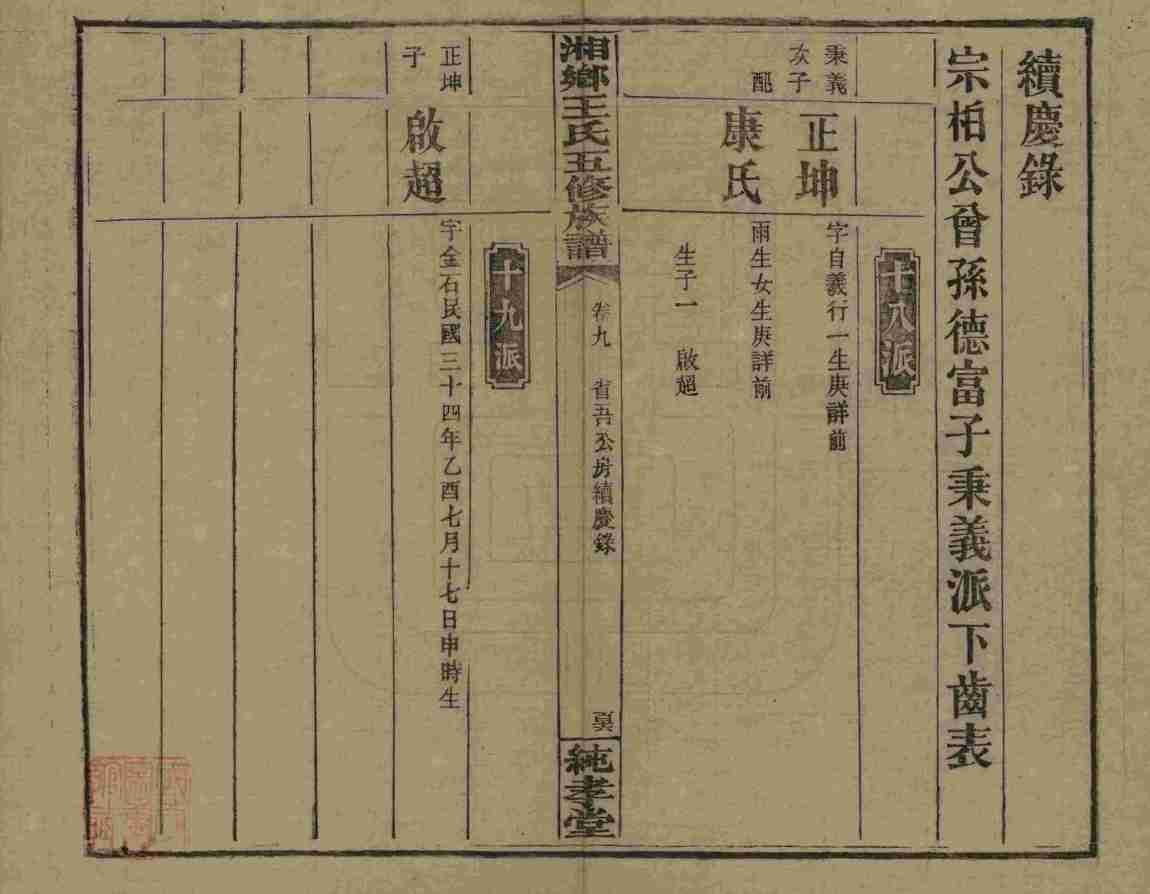 續慶錄
宗柏公曾孫德富子秉義派下齒表
十八派
秉義
次子
正坤
字自義行一生庚詳前
配
康氏
雨生女生庚詳前
生子一 啟超
湘鄉王氏五修族譜
卷九 省吾公房續慶錄
純孝堂
十九派
正坤
子
啟超
字金石民國三十四年乙酉七月十七日申時生